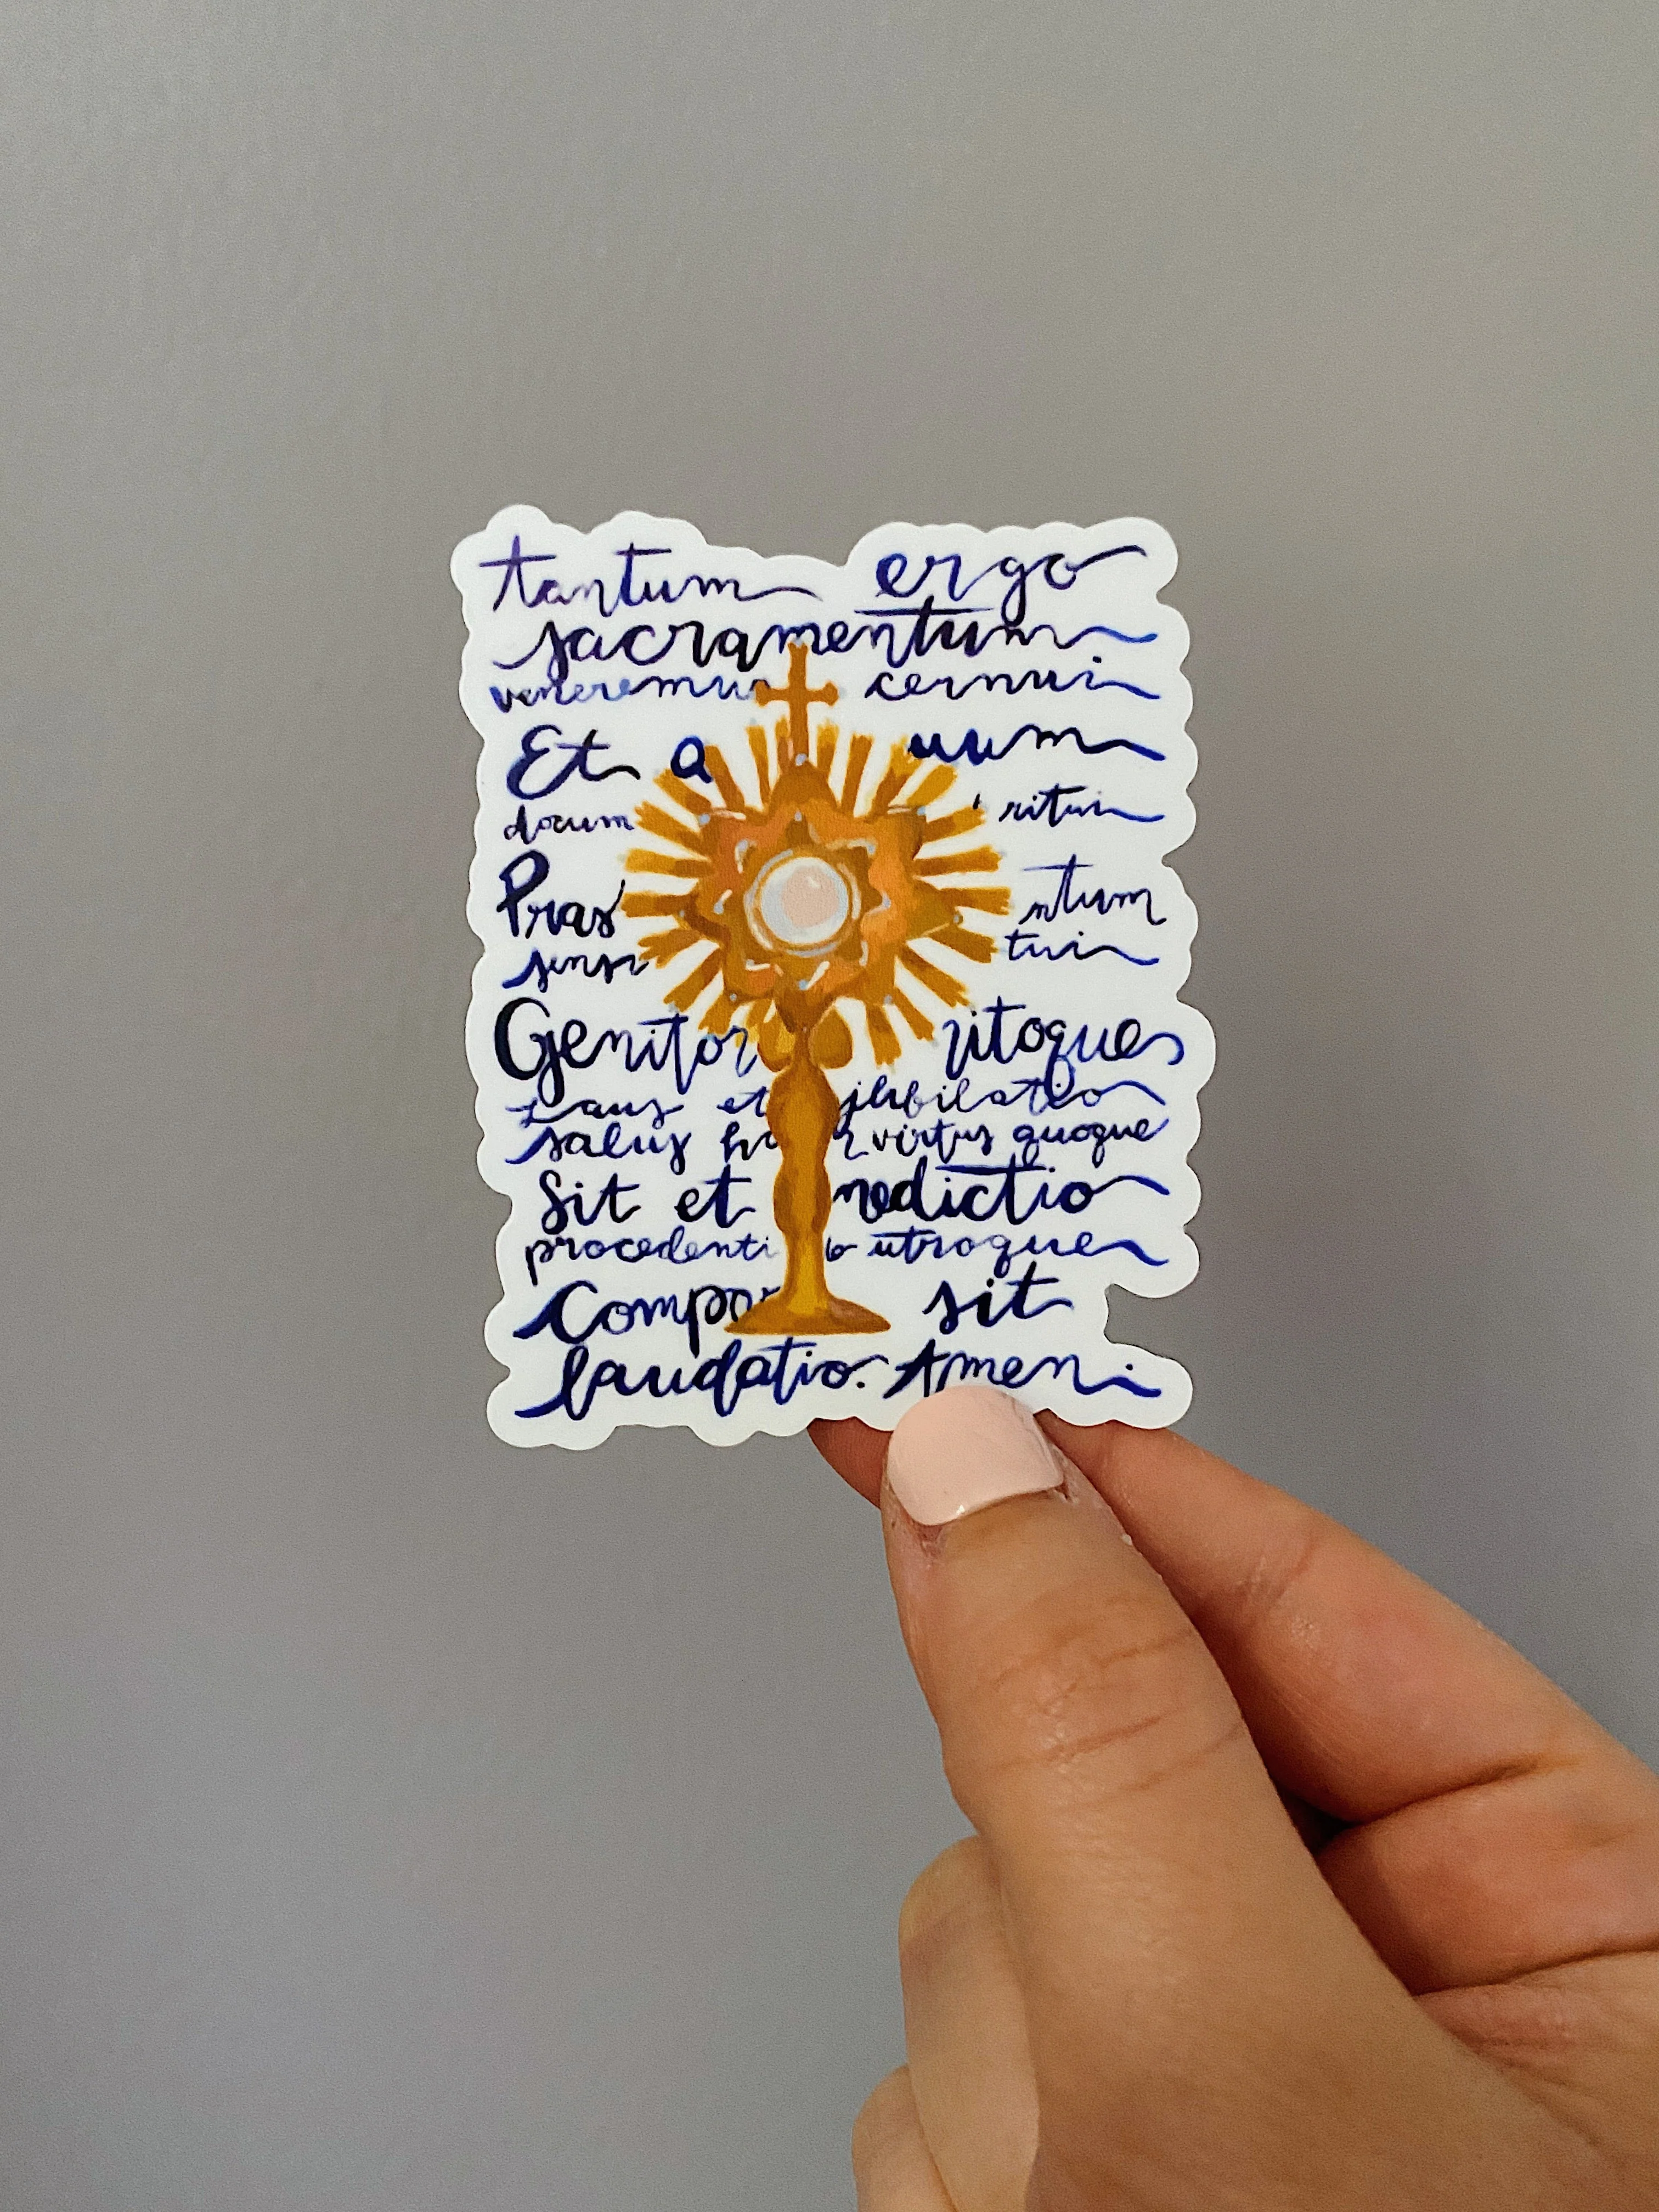 tantum ergo
sacramentum
veneremus cernui
Et a uum
docum ritui
Praes ntum
sensu tui
Genitori itoques
Laus et jubilatio
salus ho r virtus quoque
Sit et nedictio
procedenti b utroque
Compar sit
laudatio. Amen.